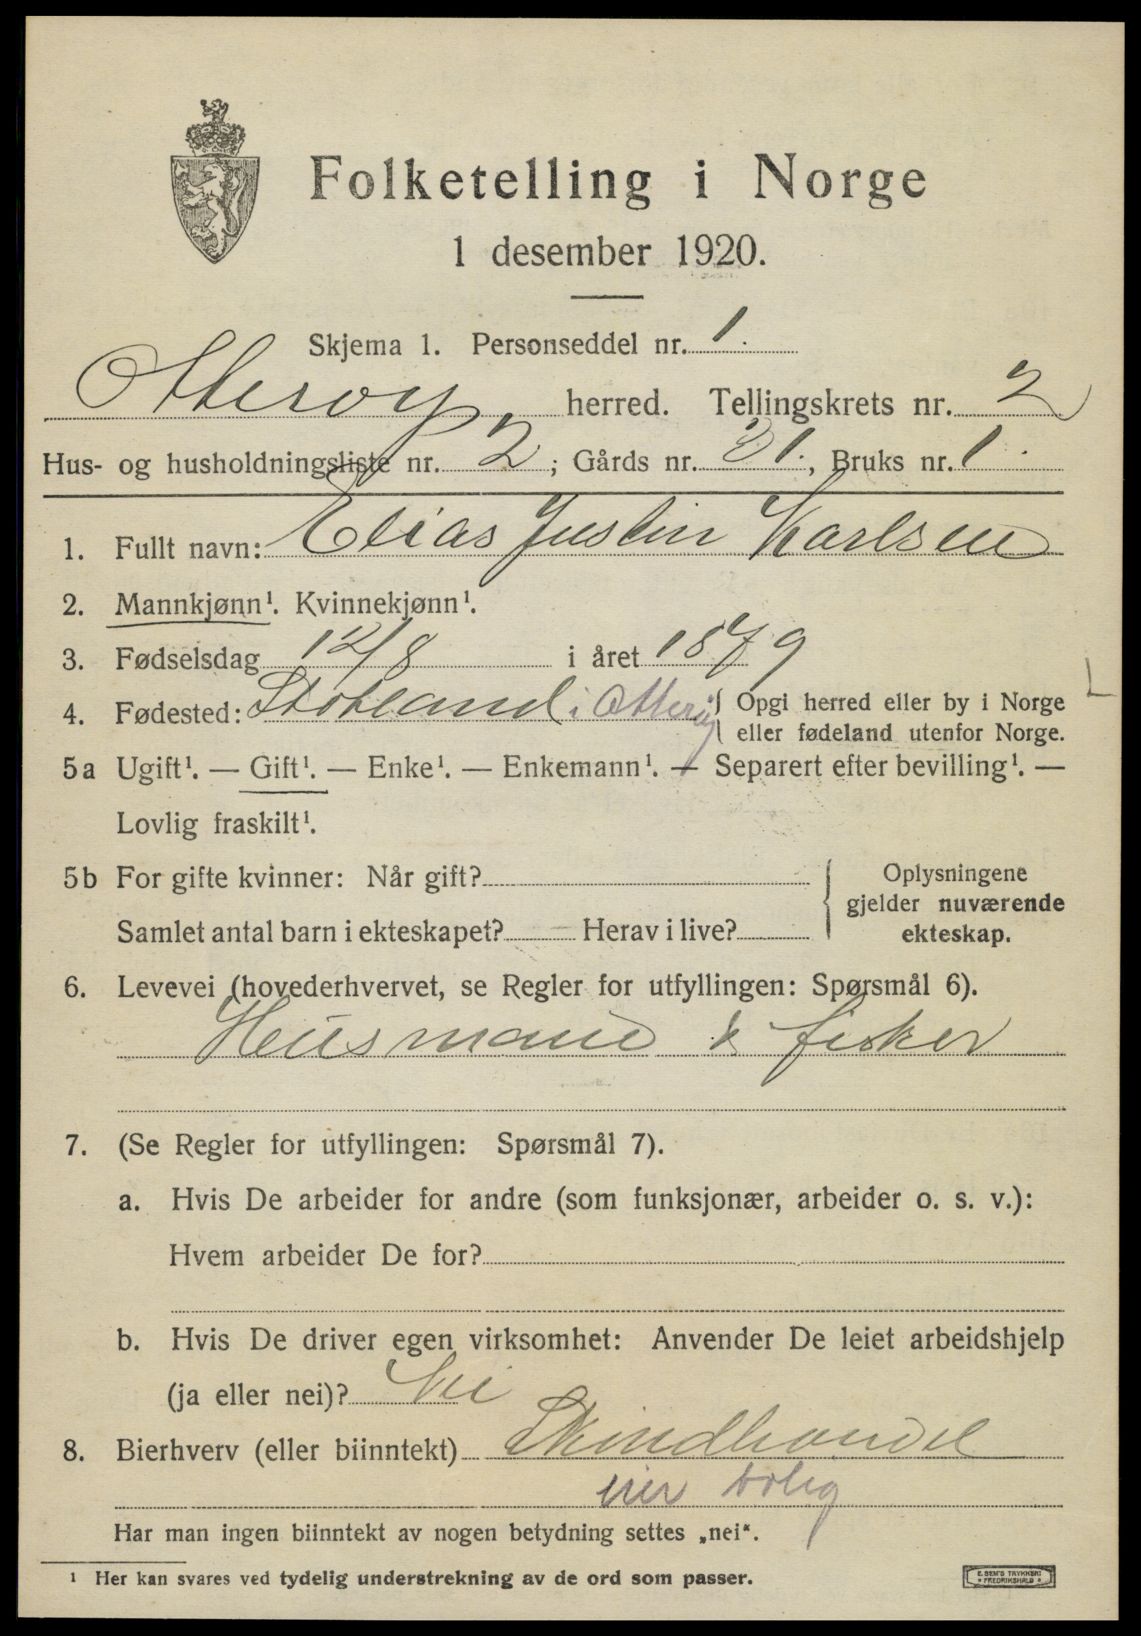 Folketelling i Norge
1 desember 1920.
Skjema 1. Personseddel nr. 1.
Otterøy herred. Tellingskrets nr. 2
Hus- og husholdningsliste nr. 2; Gårds nr. 31., Bruks nr. 1.
1. Fullt navn: Elias Justin Karlsen
2. Mannkjønn¹. Kvinnekjønn¹.
3. Fødselsdag 12/8 i året 1879
4. Fødested: i Otterøy { Opgi herred eller by i Norge
eller fødeland utenfor Norge.
5a Ugift¹. — Gift¹. — Enke¹. — Enkemann¹. — Separert efter bevilling¹. —
Lovlig fraskilt¹.
5b For gifte kvinner: Når gift?
Samlet antal barn i ekteskapet? Herav i live?
{ Oplysningene
gjelder nuværende
ekteskap.
6. Levevei (hovederhvervet, se Regler for utfyllingen: Spørsmål 6).
Husmand & fisker
7. (Se Regler for utfyllingen: Spørsmål 7).
a. Hvis De arbeider for andre (som funksjonær, arbeider o. s. v.):
Hvem arbeider De for?
b. Hvis De driver egen virksomhet: Anvender De leiet arbeidshjelp
(ja eller nei)? Nei
8. Bierhverv (eller biinntekt) Skindhandel
Har man ingen biinntekt av nogen betydning settes „nei“.
¹ Her kan svares ved tydelig understrekning av de ord som passer.
E. SEM'S TRYKKERI
FREDRIKSHALD